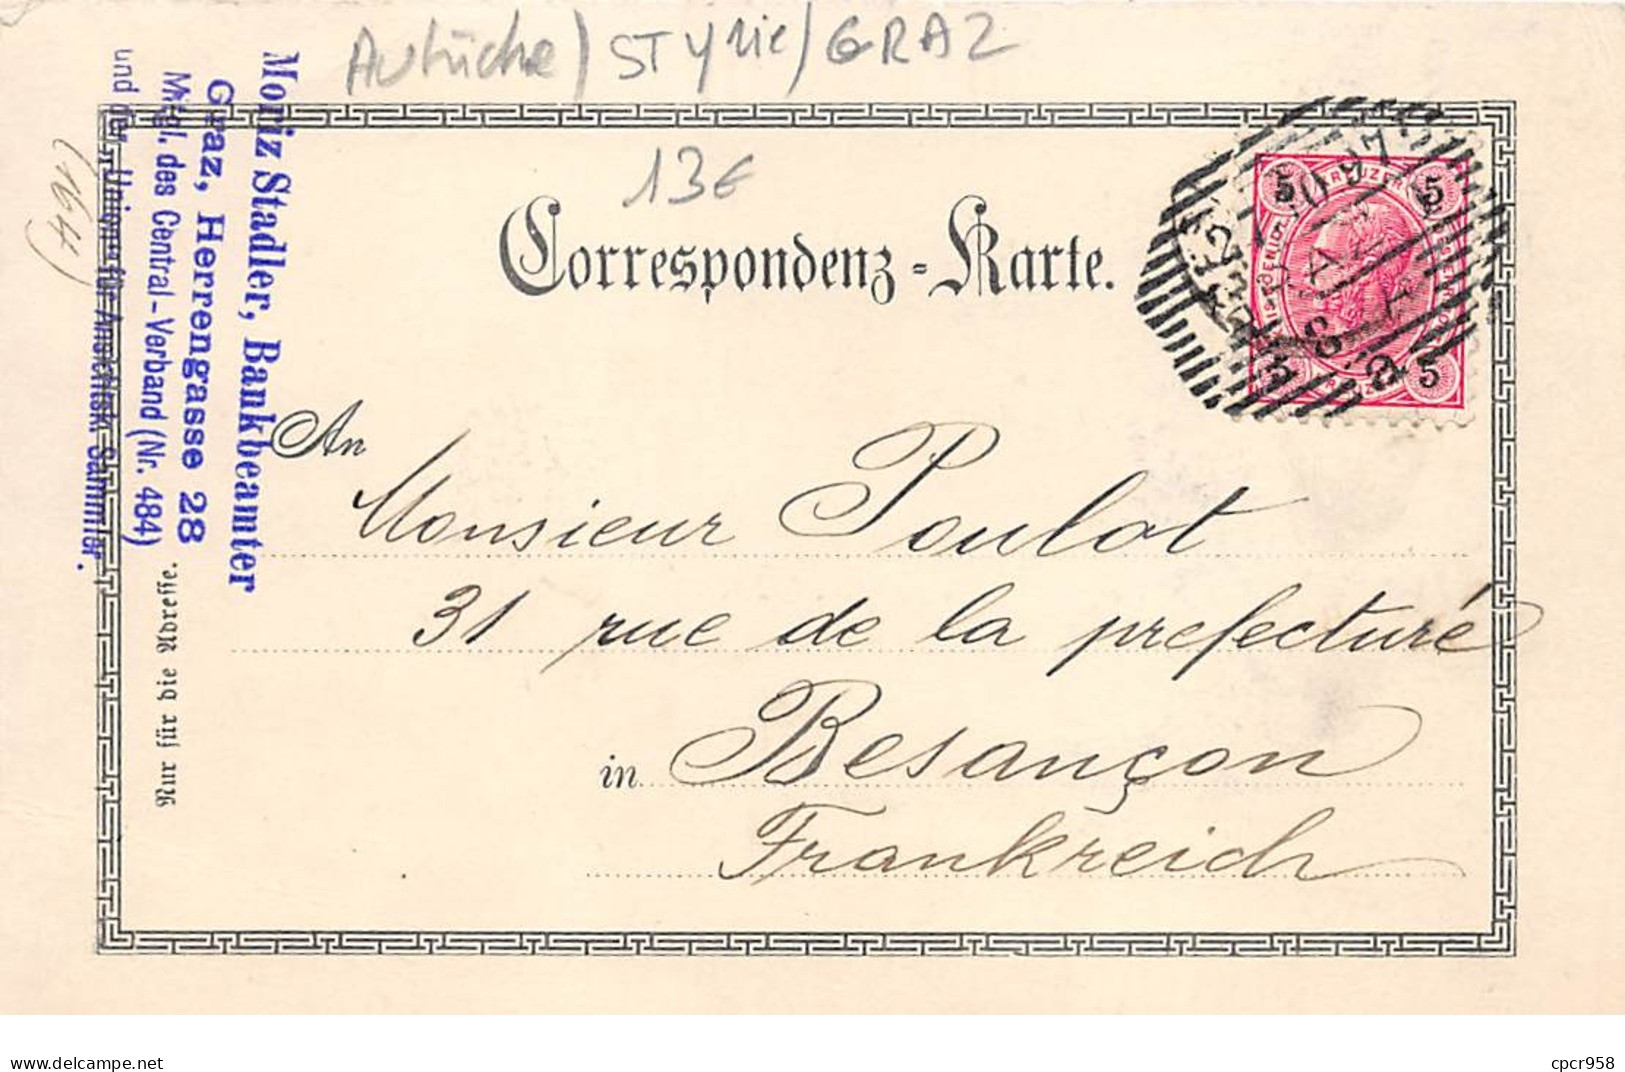 Autriche / STYrie / GRAZ
13€
Correspondenz-Karte.
5 KREUZER 5
5 5
Moriz Stadler, Bankbeamter
Graz, Herrengasse 28
Mitgl. des Central-Verband (Nr. 484)
und der „Union“ für Ansichtsk. Sammler.
(164)
Nur für die Adresse.
An
Monsieur Poulot
31 rue de la prefecturé
in Besançon
Frankreich
delcampe.net
cpcr958